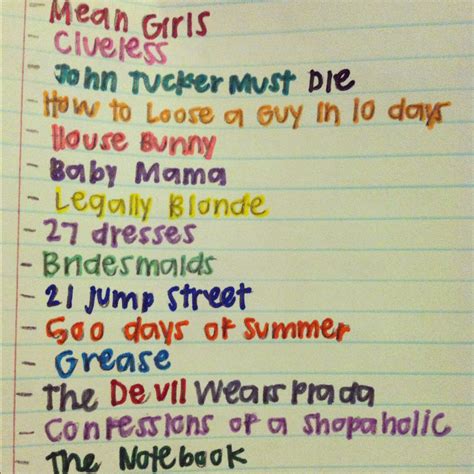 - Mean Girls
- Clueless
- John Tucker Must Die
- How to Loose a Guy in 10 days
- House Bunny
- Baby Mama
- Legally Blonde
- 27 dresses
- Bridesmaids
- 21 Jump Street
- 500 days of summer
- Grease
- The Devil Wears Prada
- Confessions of a Shopaholic
- The Notebook